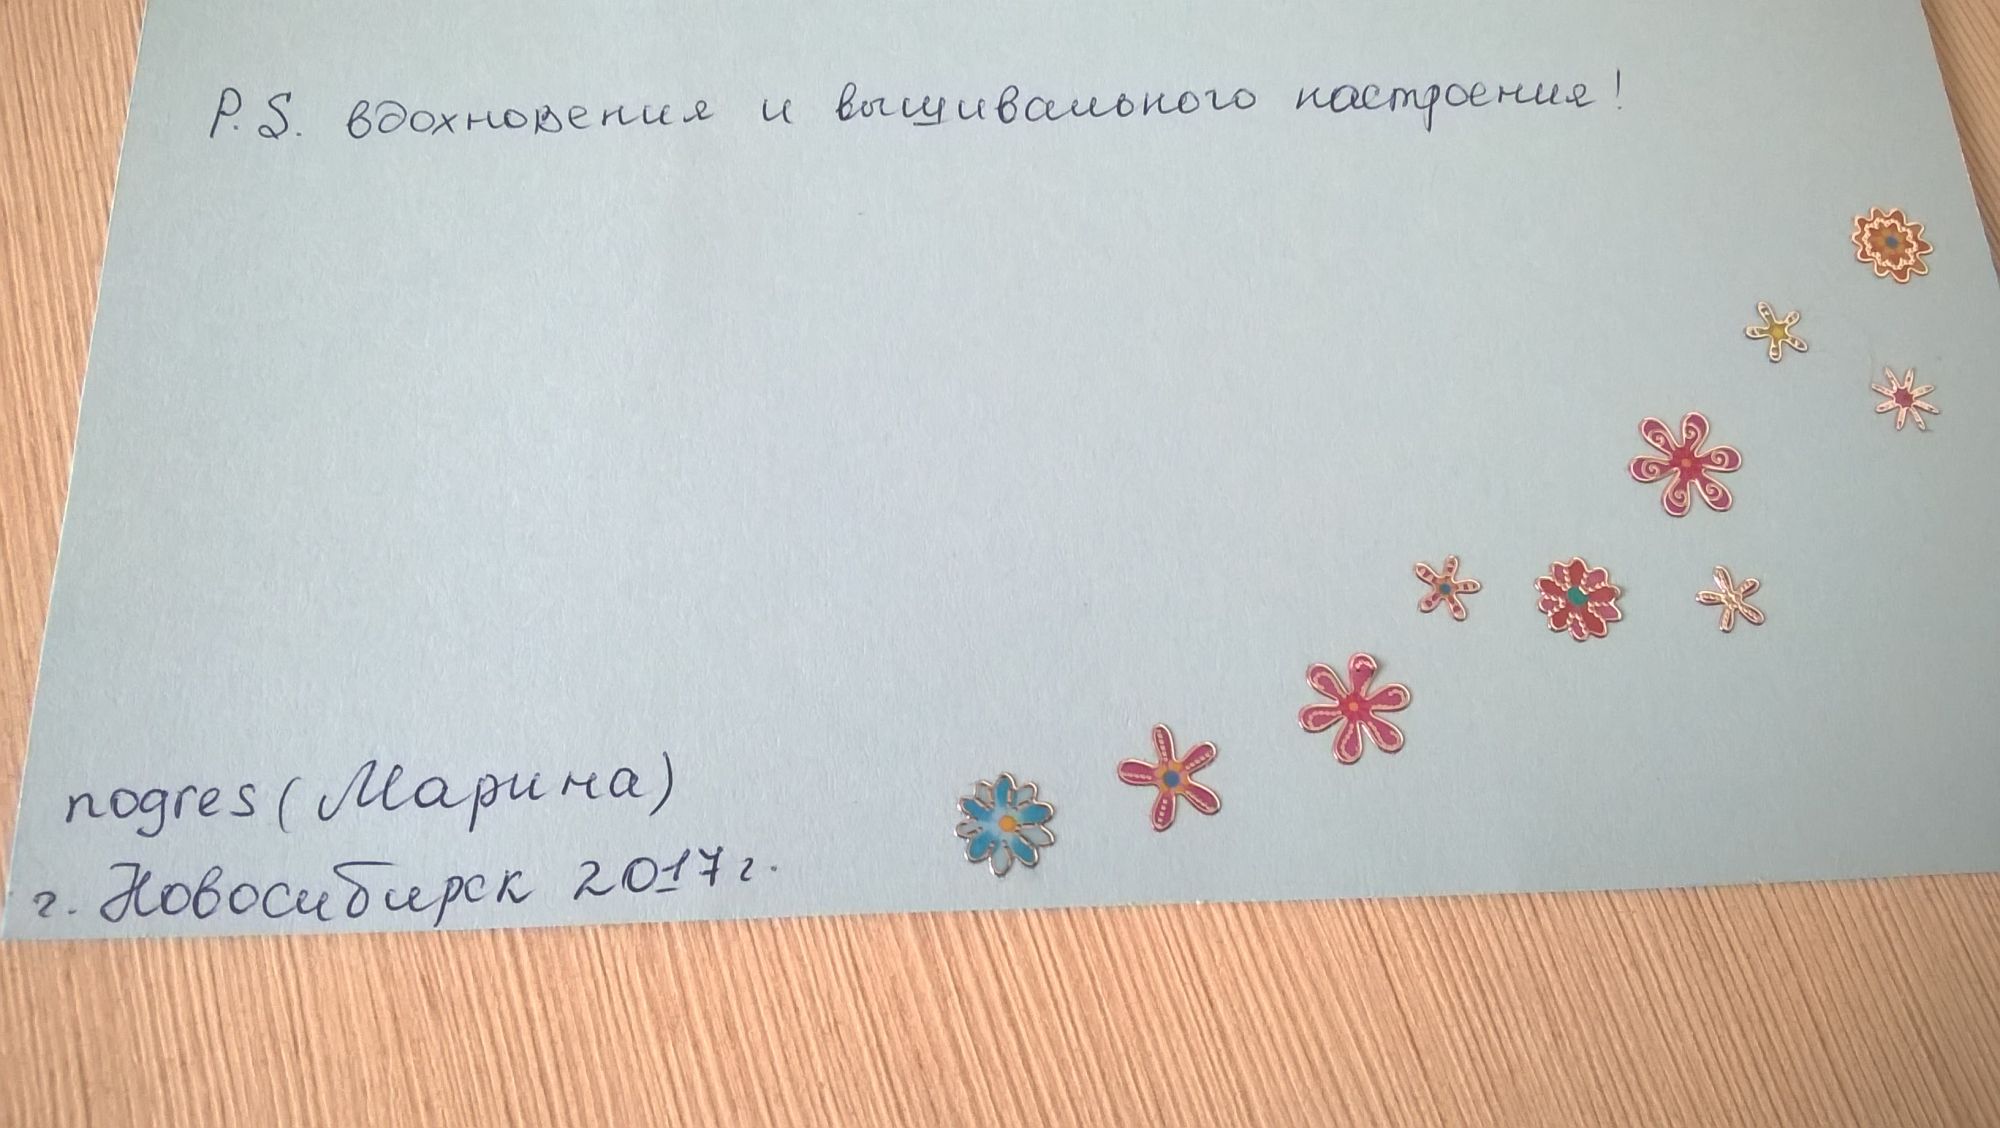 P.S. вдохновения и вышивального настроения!
nogres (Марина)
г. Новосибирск 2017 г.